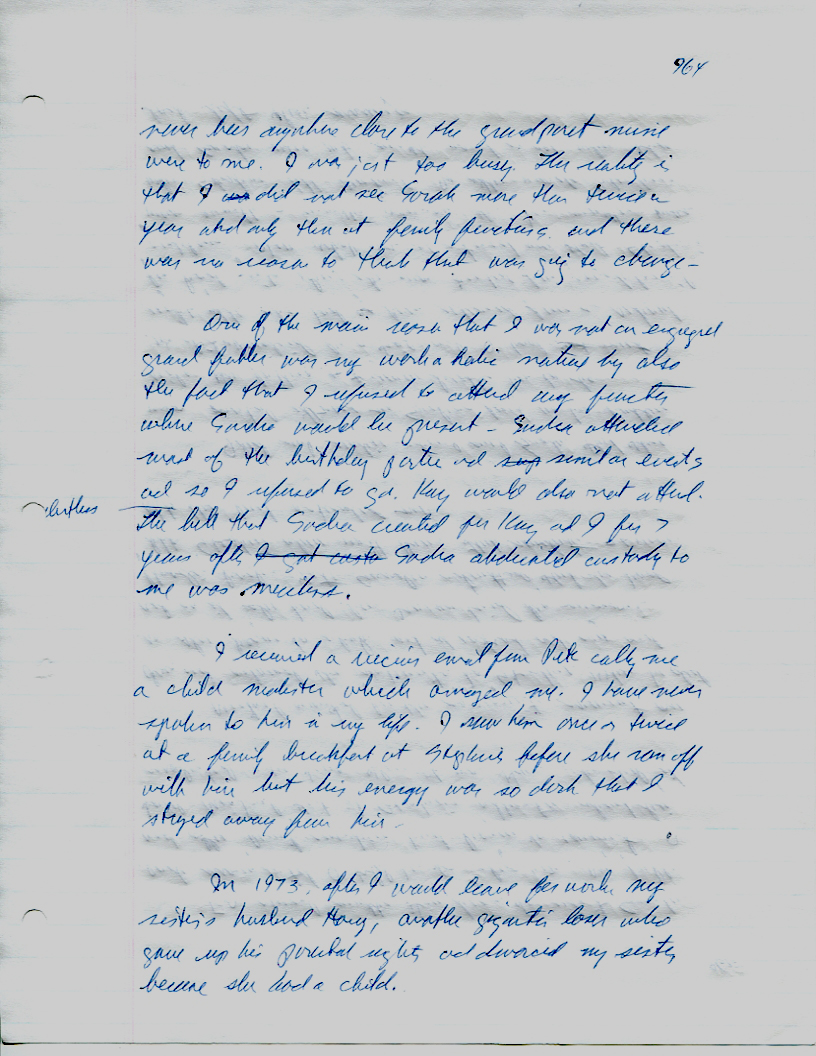 964
never been anywhere close to the grandparent mine
were to me. I was just too busy. The reality is
that I was did not see Sarah more than twice a
year and only then at family functions and there
was no reason to think that was going to change -
One of the main reason that I was not an engaged
grand father was my workaholic nature by also
the fact that I refused to attend any function
where Sandra would be present - Sandra attended
most of the birthday parties and similar events
and so I refused to go. Kay would also not attend.
The hell that Sandra created for Kay and I for 7
years after I got custo Sandra abdicated custody to
me was merciless.
I received a vicious email from Pete calling me
a child molester which amazed me. I have never
spoken to him in my life. I saw him once or twice
at a family breakfast at before she ran off
with him but his energy was so dark that I
stayed away from him -
In 1973, after I would leave for work my
sister's husband Harry, another gigantic loser who
gave up his parental rights and divorced my sister
because she had a child.